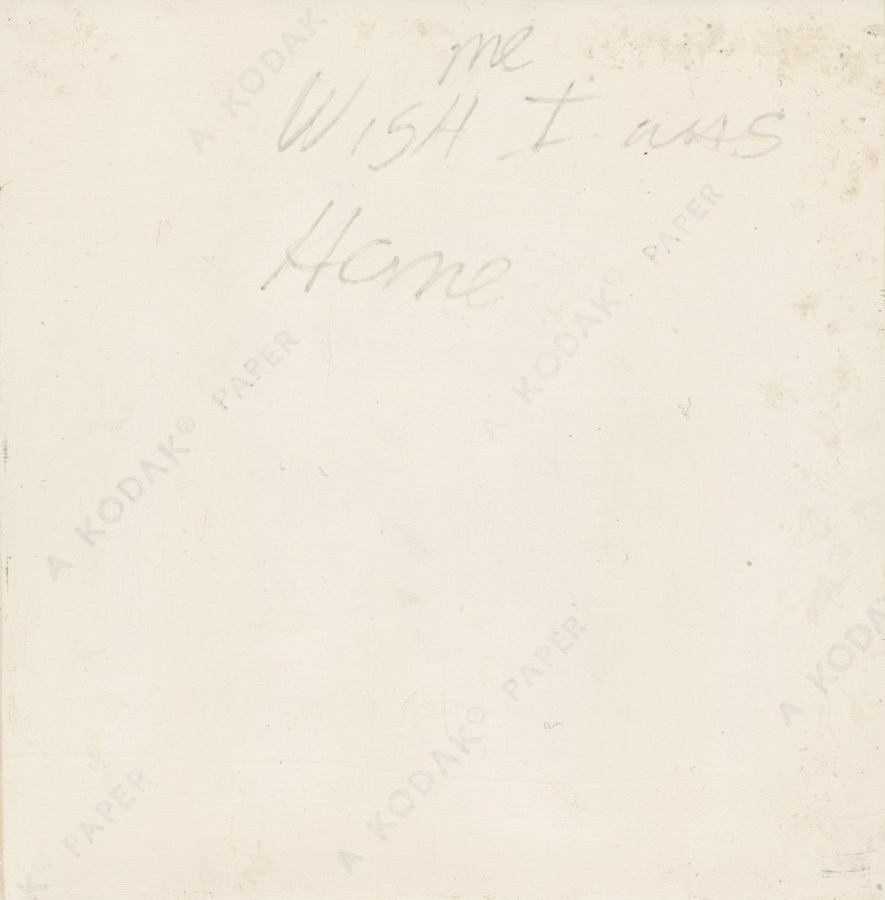 me
WISH I was
Home
A KODAK
A KODAK® PAPER
A KODAK® PAPER
A KODAK® PAPER
A KODA
K® PAPER